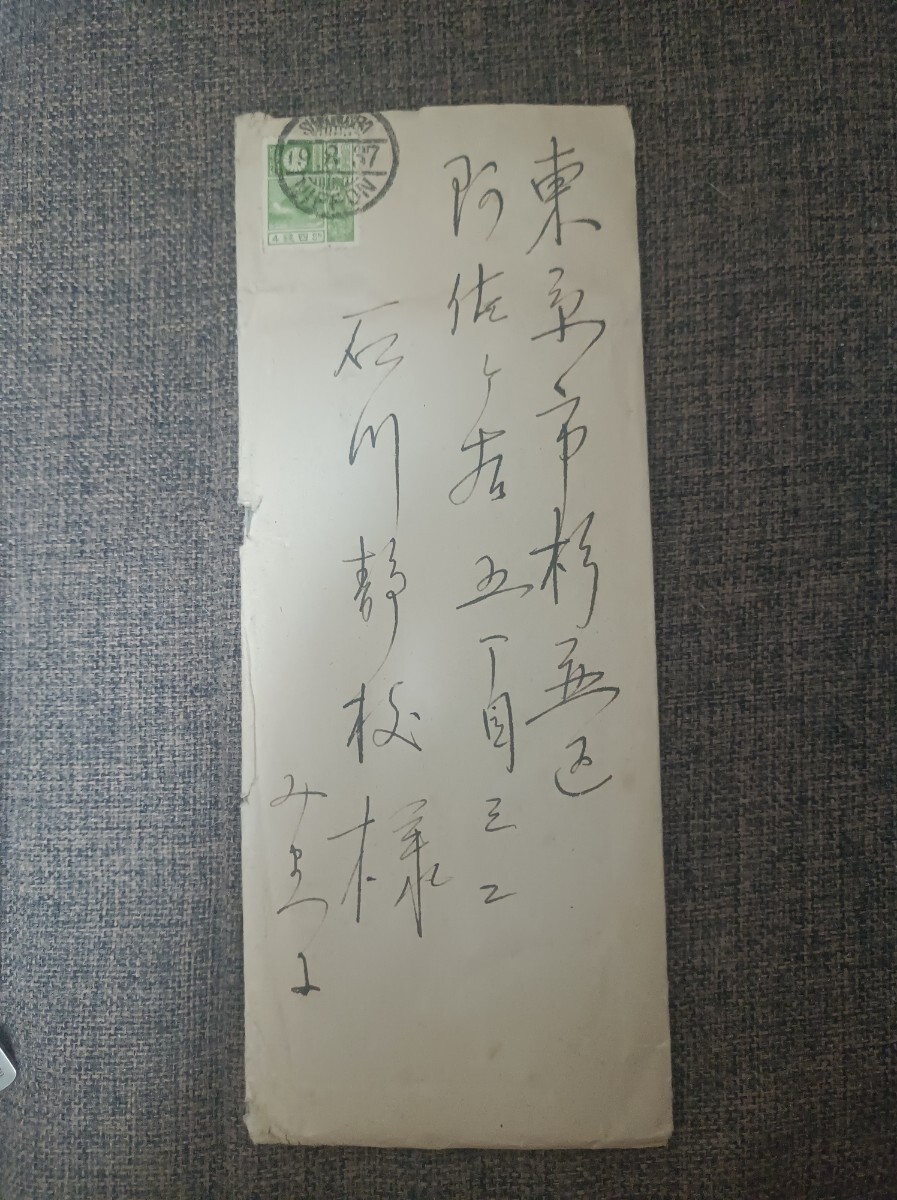 東京市杉並区
阿佐ヶ谷五丁目三二
石川静枝様
みもと
19.8.37
NIPPON